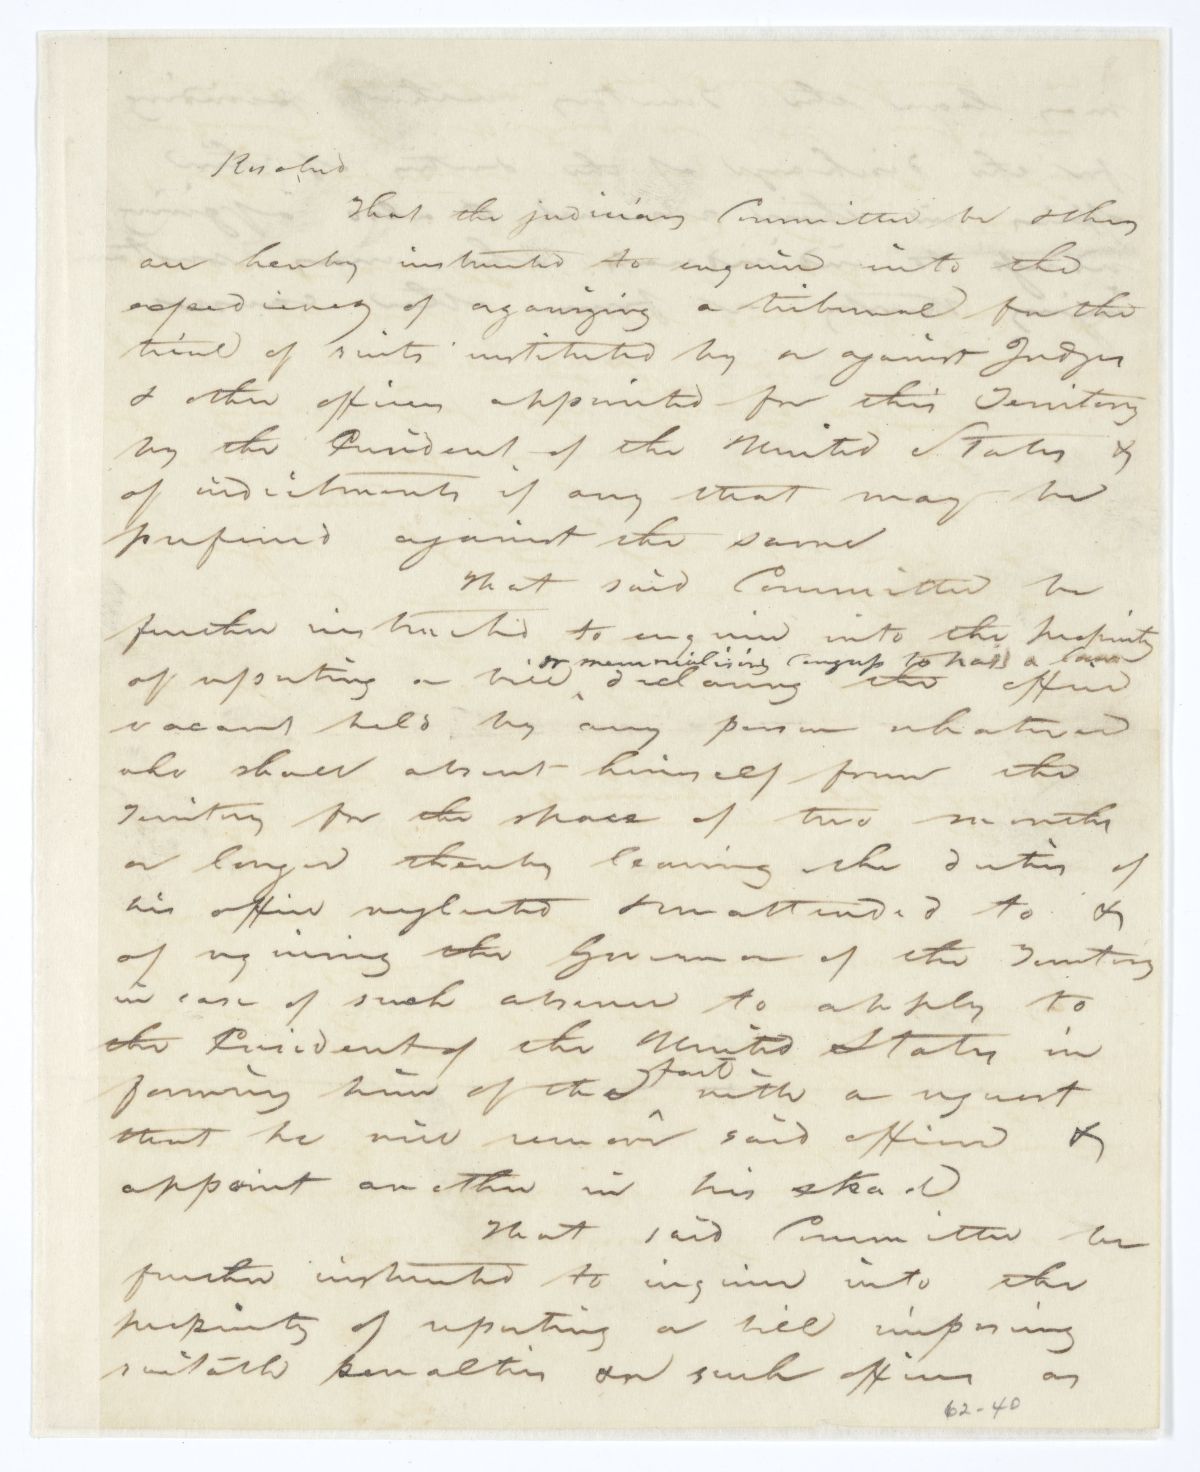 Resolved
That the judiciary Committee be & they
are hereby instructed to enquire into the
expediency of organizing a tribunal for the
trial of suits instituted by or against Judges
& other officers appointed for this Territory
by the President of the United States &
of indictments if any that may be
prefered against the same
That said Committee be
further instructed to enquire into the propriety
or memorialising Congress to pass a law
of reporting a bill ^ declaring the office
vacant held by any person whatever
who shall absent himself from the
Territory for the space of two months
or longer thereby leaving the duties of
his office neglected & unattended to &
of requiring the Governor of the Territory
in case of such absence to apply to
the President of the United States in
fact
forming him of the ^ with a request
that he will remove said officer &
appoint another in his stead
That said Committee be
further instructed to inquire into the
propriety of reporting a bill imposing
suitable penalties on such officers as
62-40